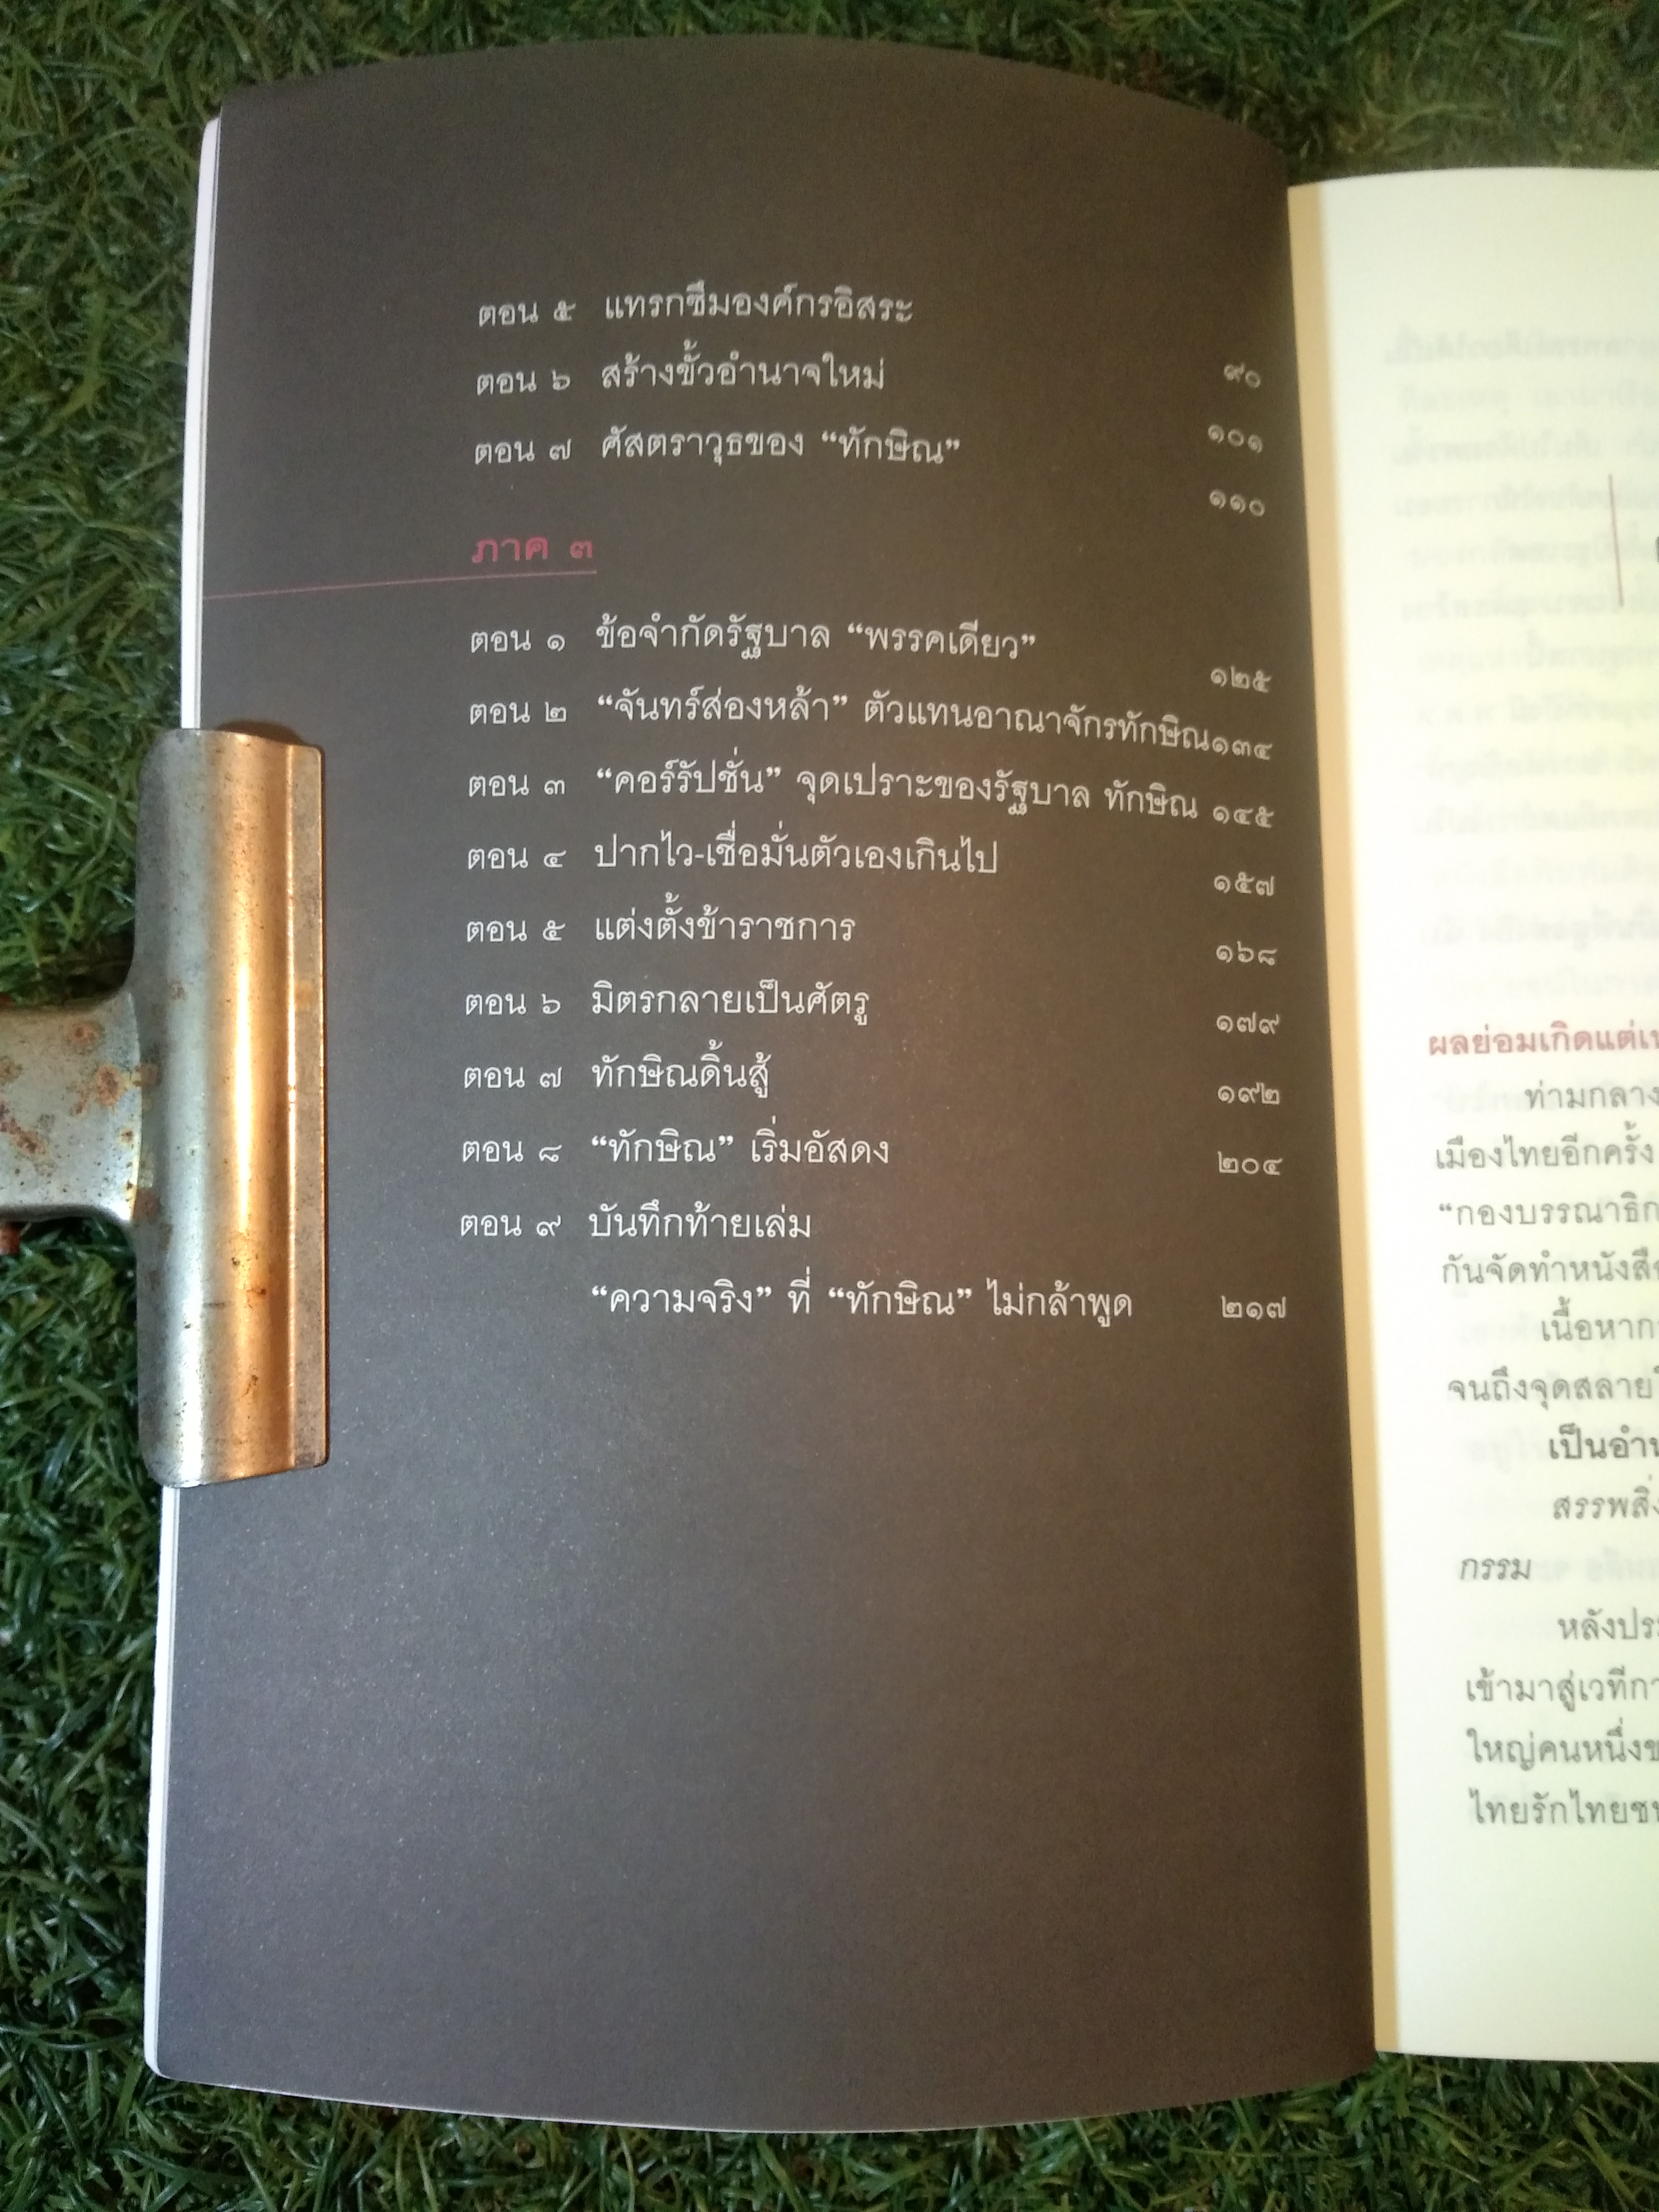 ตอน ๕ แทรกซึมองค์กรอิสระ ๙๐
ตอน ๖ สร้างขั้วอำนาจใหม่ ๑๐๑
ตอน ๗ ศัสตราวุธของ “ทักษิณ” ๑๑๐
ภาค ๓
ตอน ๑ ข้อจำกัดรัฐบาล “พรรคเดียว” ๑๒๕
ตอน ๒ “จันทร์ส่องหล้า” ตัวแทนอาณาจักรทักษิณ๑๓๔
ตอน ๓ “คอร์รัปชั่น” จุดเปราะของรัฐบาล ทักษิณ ๑๔๕
ตอน ๔ ปากไว-เชื่อมั่นตัวเองเกินไป ๑๕๗
ตอน ๕ แต่งตั้งข้าราชการ ๑๖๘
ตอน ๖ มิตรกลายเป็นศัตรู ๑๗๙
ตอน ๗ ทักษิณดิ้นสู้ ๑๙๒
ตอน ๘ “ทักษิณ” เริ่มอัสดง ๒๐๔
ตอน ๙ บันทึกท้ายเล่ม
“ความจริง” ที่ “ทักษิณ” ไม่กล้าพูด ๒๑๗
ผลย่อมเกิดแต่
ท่ามกลาง
เมืองไทยอีกครั้ง
“กองบรรณาธิก
กันจัดทำหนังสือ
เนื้อหาก
จนถึงจุดสลาย
เป็นอำน
สรรพสิ่ง
กรรม
หลังประ
เข้ามาสู่เวทีกา
ใหญ่คนหนึ่งข
ไทยรักไทยชน